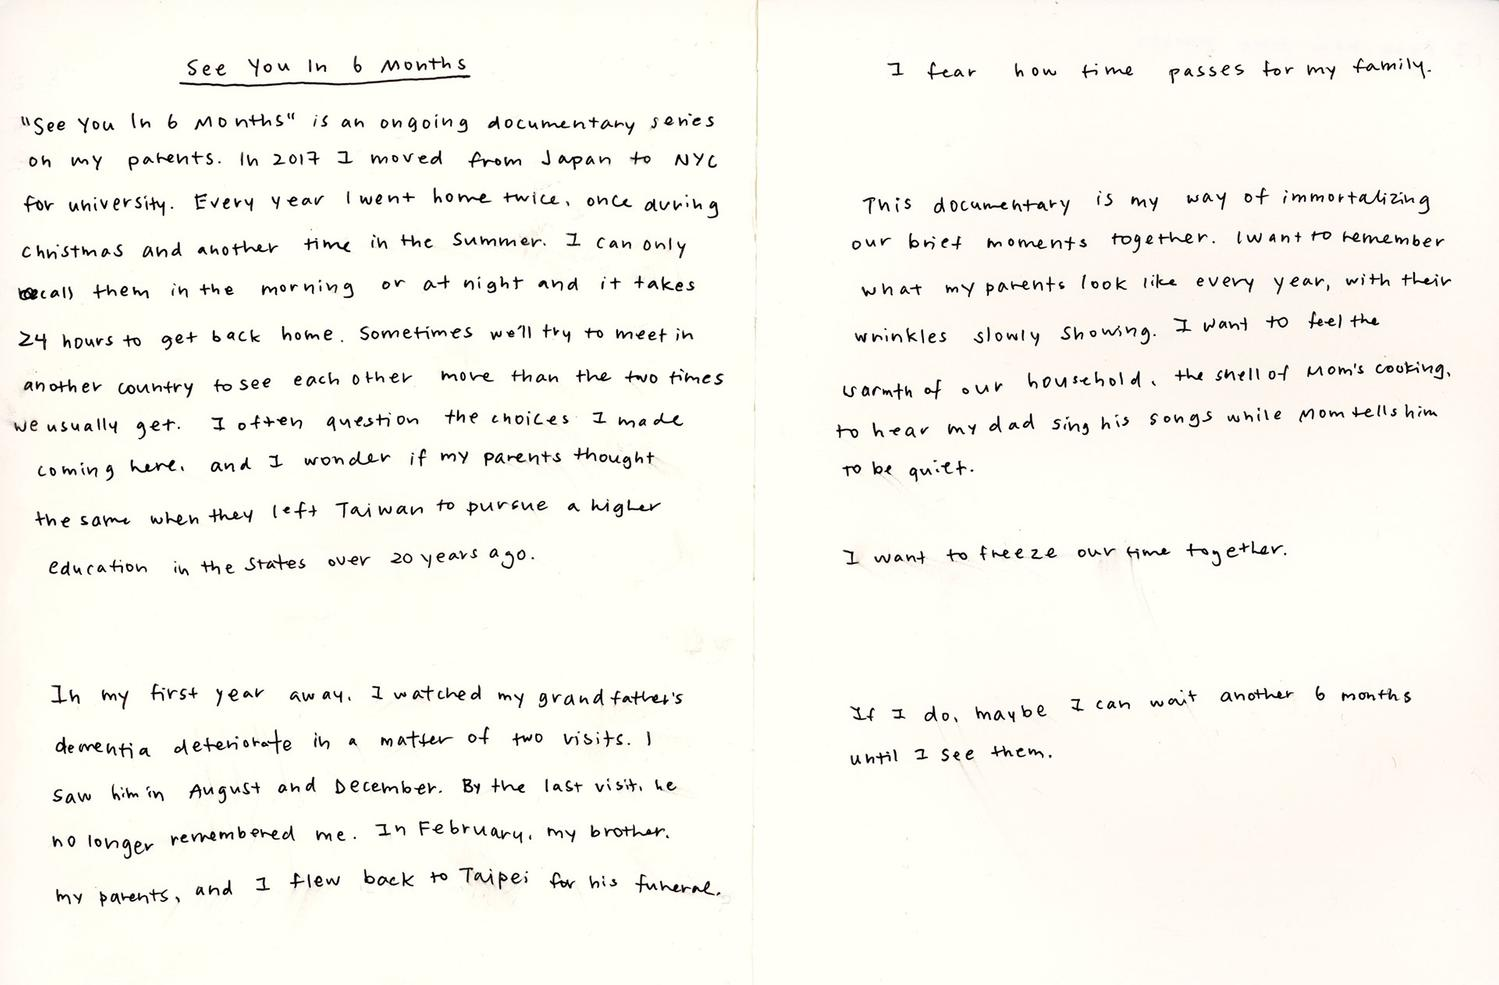 See You In 6 Months
"See You In 6 Months" is an ongoing documentary series
on my parents. In 2017 I moved from Japan to NYC
for university. Every year I went home twice, once during
christmas and another time in the summer. I can only
call them in the morning or at night and it takes
24 hours to get back home. Sometimes we'll try to meet in
another country to see each other more than the two times
we usually get. I often question the choices I made
coming here, and I wonder if my parents thought
the same when they left Taiwan to pursue a higher
education in the States over 20 years ago.
In my first year away, I watched my grandfather's
dementia deteriorate in a matter of two visits. I
saw him in August and December. By the last visit, he
no longer remembered me. In February, my brother,
my parents, and I flew back to Taipei for his funeral.
I fear how time passes for my family.
This documentary is my way of immortalizing
our brief moments together. I want to remember
what my parents look like every year, with their
wrinkles slowly showing. I want to feel the
warmth of our household, the smell of Mom's cooking,
to hear my dad sing his songs while Mom tells him
to be quiet.
I want to freeze our time together.
If I do, maybe I can wait another 6 months
until I see them.